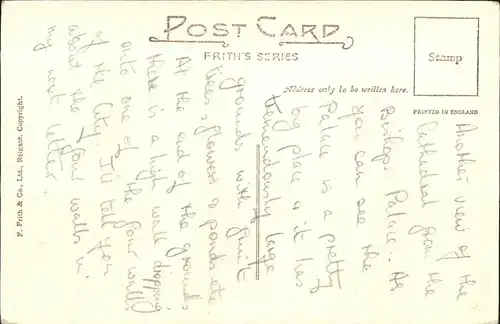 POST CARD
FRITH'S SERIES
Address only to be written here.
Stamp
PRINTED IN ENGLAND
F. Frith & Co., Ltd., Reigate, Copyright.
Another view of the
Cathedral from the
Bishops Palace. As
you can see the
Palace is a pretty
big place & it has
tremendously large
grounds with fruit
trees, flowers & ponds etc.
At the end of the grounds
there is a high wall dropping
onto one of the four walls
of the City. I'll tell you
about the four walls in
my next letter.